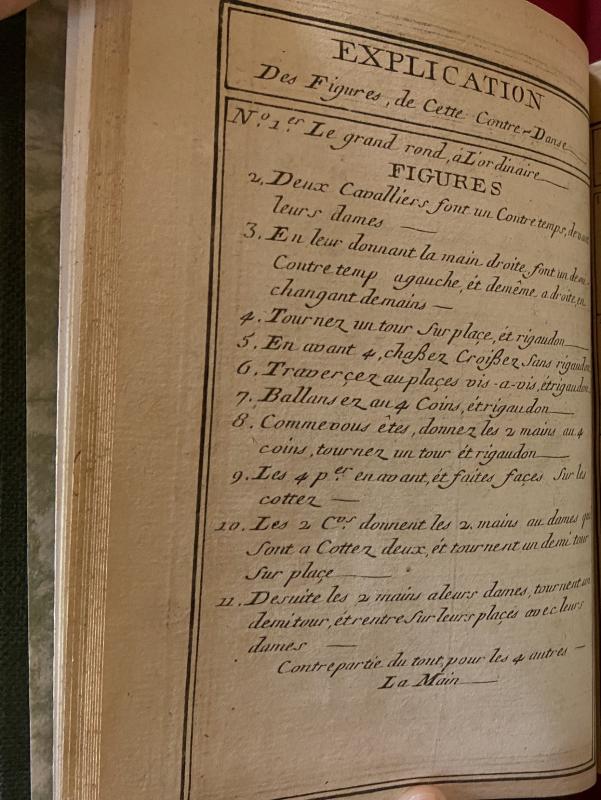 EXPLICATION
Des Figures, de Cette Contre-Danse
No. 1.er Le grand rond, à L'ordinaire
FIGURES
2. Deux Cavalliers font un Contretemps, devant
leurs dames
3. En leur donnant la main droite, font un demi
Contretemp agauche, ét demême a droite, en
changant demains
4. Tournez un tour Sur plaçe, ét rigaudon
5. En avant 4, chaßez Croißez Sans rigaudon
6. Traverçez au plaçes vis-a-vis, étrigaudon
7. Ballansez au 4 Coins, étrigaudon
8. Comme vous êtes, donnez les 2 mains au 4
coins, tournez un tour ét rigaudon
9. Les 4 p.er en avant, ét faites façes Sur les
cottez
10. Les 2 C.vs donnent les 2 mains au dames qui
Sont a Cottez deux, ét tournent un demi tour
Sur plaçe
11. Desuite les 2 mains aleurs dames, tournent un
demitour, étrentre Sur leurs plaçes avec leurs
dames
Contrepartie du tout, pour les 4 autres
La Main